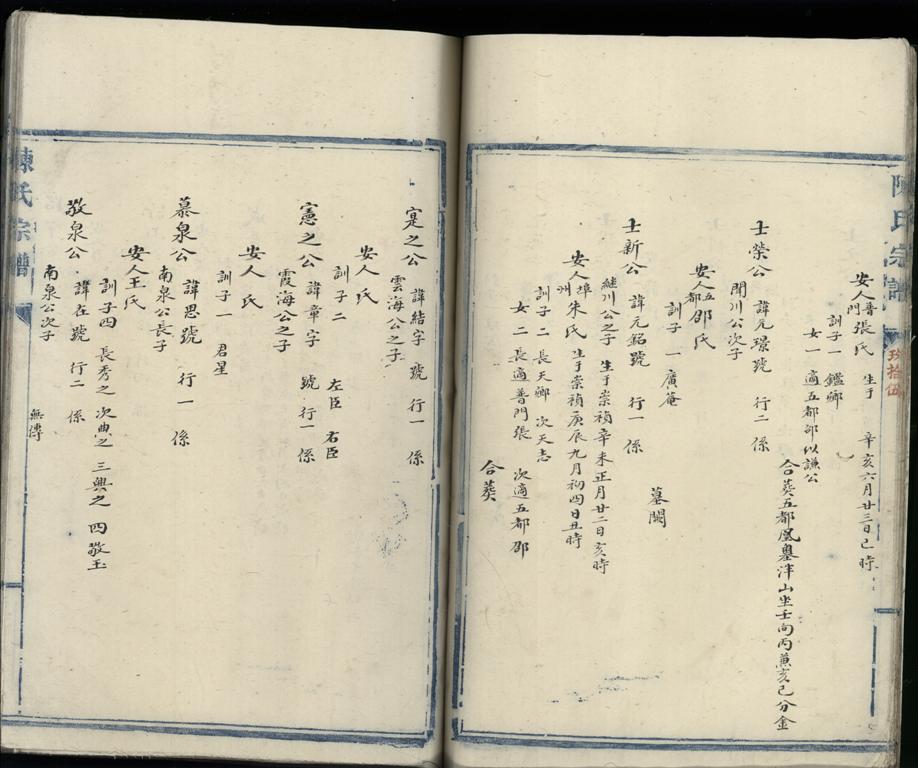 陳氏宗譜
玖拾伍
安人普門張氏 生于 辛亥六月廿三日巳時
訓子一 鑑鄉
女一 適五都邵似謙公
合葵五都鳳 山坐壬向丙兼亥巳分金
士榮公 諱元璟號 行二 係
開川公次子
安人五都邵氏
訓子 一 廣菴
墓闕
士新公 諱元銘號 行一 係
繼川公之子 生于崇禎辛未正月廿二日亥時
安人埠州朱氏 生于崇禎庚辰九月初四日丑時
訓子二 長天鄉 次天志
女 二 長適普門張 次適五都邵
合葵
寔之公 諱結字 號 行一 係
雲海公之子
安人 氏
訓子 二 左臣 右臣
憲之公 諱章字 號 行一 係
霞海公之子
安人 氏
訓子 一 君星
慕泉公 諱思號 行 一 係
南泉公長子
安人王氏
訓子四 長秀之 次典之 三興之 四敬玉
敬泉公 諱在號 行二 係
南泉公次子 無傳
陳氏宗譜